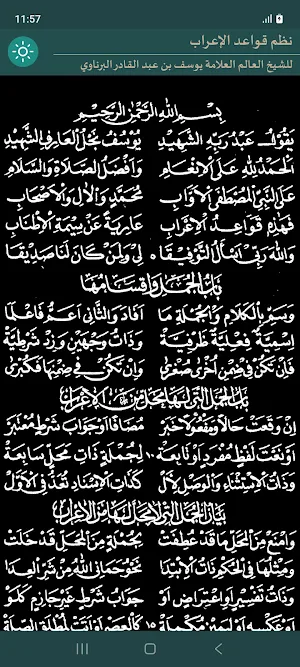 11:57
نظم قواعد الإعراب
للشيخ العالم العلامة يوسف بن عبد القادر البرناوي
بِسْمِ اللهِ الرَّحْمٰنِ الرَّحِيْمِ
يَقُوْلُ عَبْدُ رَبِّهِ الشَّهِيْدِ يُوْسُفُ نَجْلُ الْعَارِفِ الشَّهِيْدِ
اَلْحَمْدُ لِلّٰهِ عَلَى الْاِنْعَامِ وَاَفْضَلُ الصَّلَاةِ وَالسَّلَامِ
عَلَى النَّبِيِّ الْمُصْطَفَى الْاَوَّابِ مُحَمَّدٍ وَالْاٰلِ وَالْاَصْحَابِ
فَهٰذِهِ قَوَاعِدُ الْاِعْرَابِ عَارِيَةٌ عَنْ سِيْمَةِ الْاِطْنَابِ
وَاللهَ رَبِّيْ اَسْأَلُ التَّوْفِيْقَا ٥ لِيْ وَلِمَنْ كَانَ لَنَا صَدِيْقَا
بَابُ الْجُمَلِ وَاَقْسَامِهَا
وَسَمِّ بِالْكَلَامِ وَالْجُمْلَةِ مَا اَفَادَ وَالثَّانِيْ اَعَمُّ فَاعْلَمَا
اِسْمِيَّةٌ فِعْلِيَّةٌ ظَرْفِيَّةٌ وَذَاتُ وَجْهَيْنِ وَزِدْ شَرْطِيَّةٌ
فَاِنْ تَكُنْ فِيْ ضِمْنِ اُخْرٰى صُغْرٰى وَاِنْ تَكُنْ فِيْ ضِمْنِهَا فَكُبْرٰى
بَابُ الْجُمَلِ الَّتِيْ لَهَا مَحَلٌّ مِنَ الْاِعْرَابِ
اِنْ وَقَعَتْ حَالًا وَمَفْعُوْلًا خَبَرْ مُضَافًا اَوْ جَوَابَ شَرْطٍ مُعْتَبَرْ
اَوْ نَعْتَ لَفْظٍ مُفْرَدٍ اَوْ تَابِعَةْ ١٠ لِجُمْلَةٍ ذَاتِ مَحَلٍّ سَابِعَةْ
وَذَاتُ الْاِسْتِثْنَاءِ وَالْوَصْلِ لِاَلْ كَذَاتِ الْاِسْنَادِ تُعَدُّ فِي الْاُوَلْ
بَيَانُ الْجُمَلِ الَّتِيْ لَا مَحَلَّ لَهَا مِنَ الْاِعْرَابِ
وَامْنَعْ مِنَ الْمَحَلِّ مَا قَدْ عُطِفَتْ بِجُمْلَةٍ مِنَ الْمَحَلِّ قَدْ خَلَتْ
وَمِثْلُهَا فِي الْحُكْمِ ذَاتُ الْاِبْتِدَا نَحْوُ حَمَانِيَ اللهُ مِنْ شَرِّ الْعِدَا
وَذَاتُ تَفْسِيْرٍ اَوِ اعْتِرَاضٍ اَوْ جَوَابُ شَرْطٍ غَيْرِ جَازِمٍ كَلَوْ